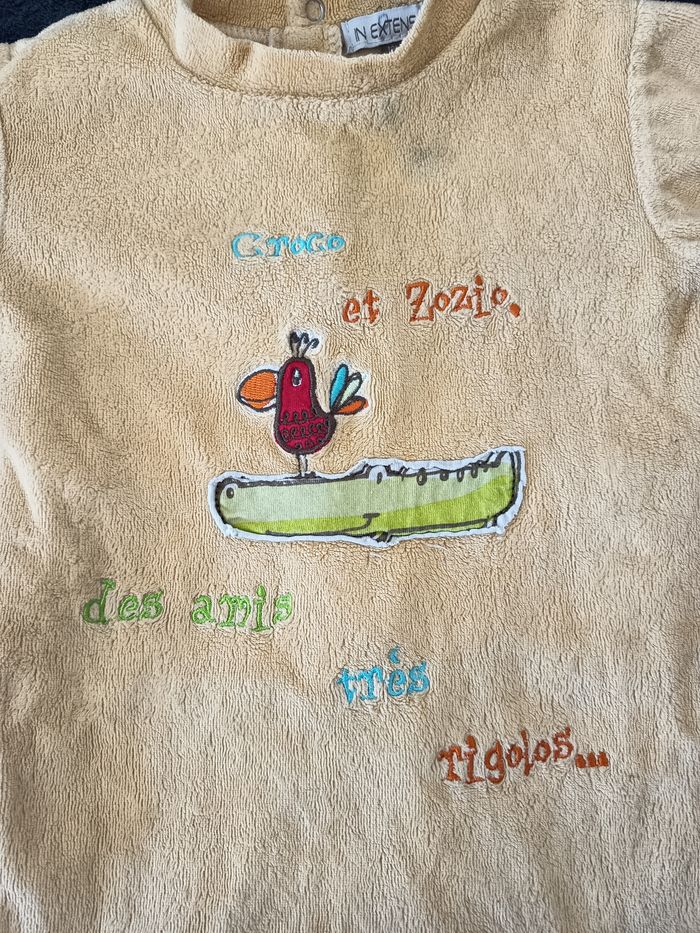 IN EXTENS
Croco
et Zozio.
des amis
trés
rigolos...